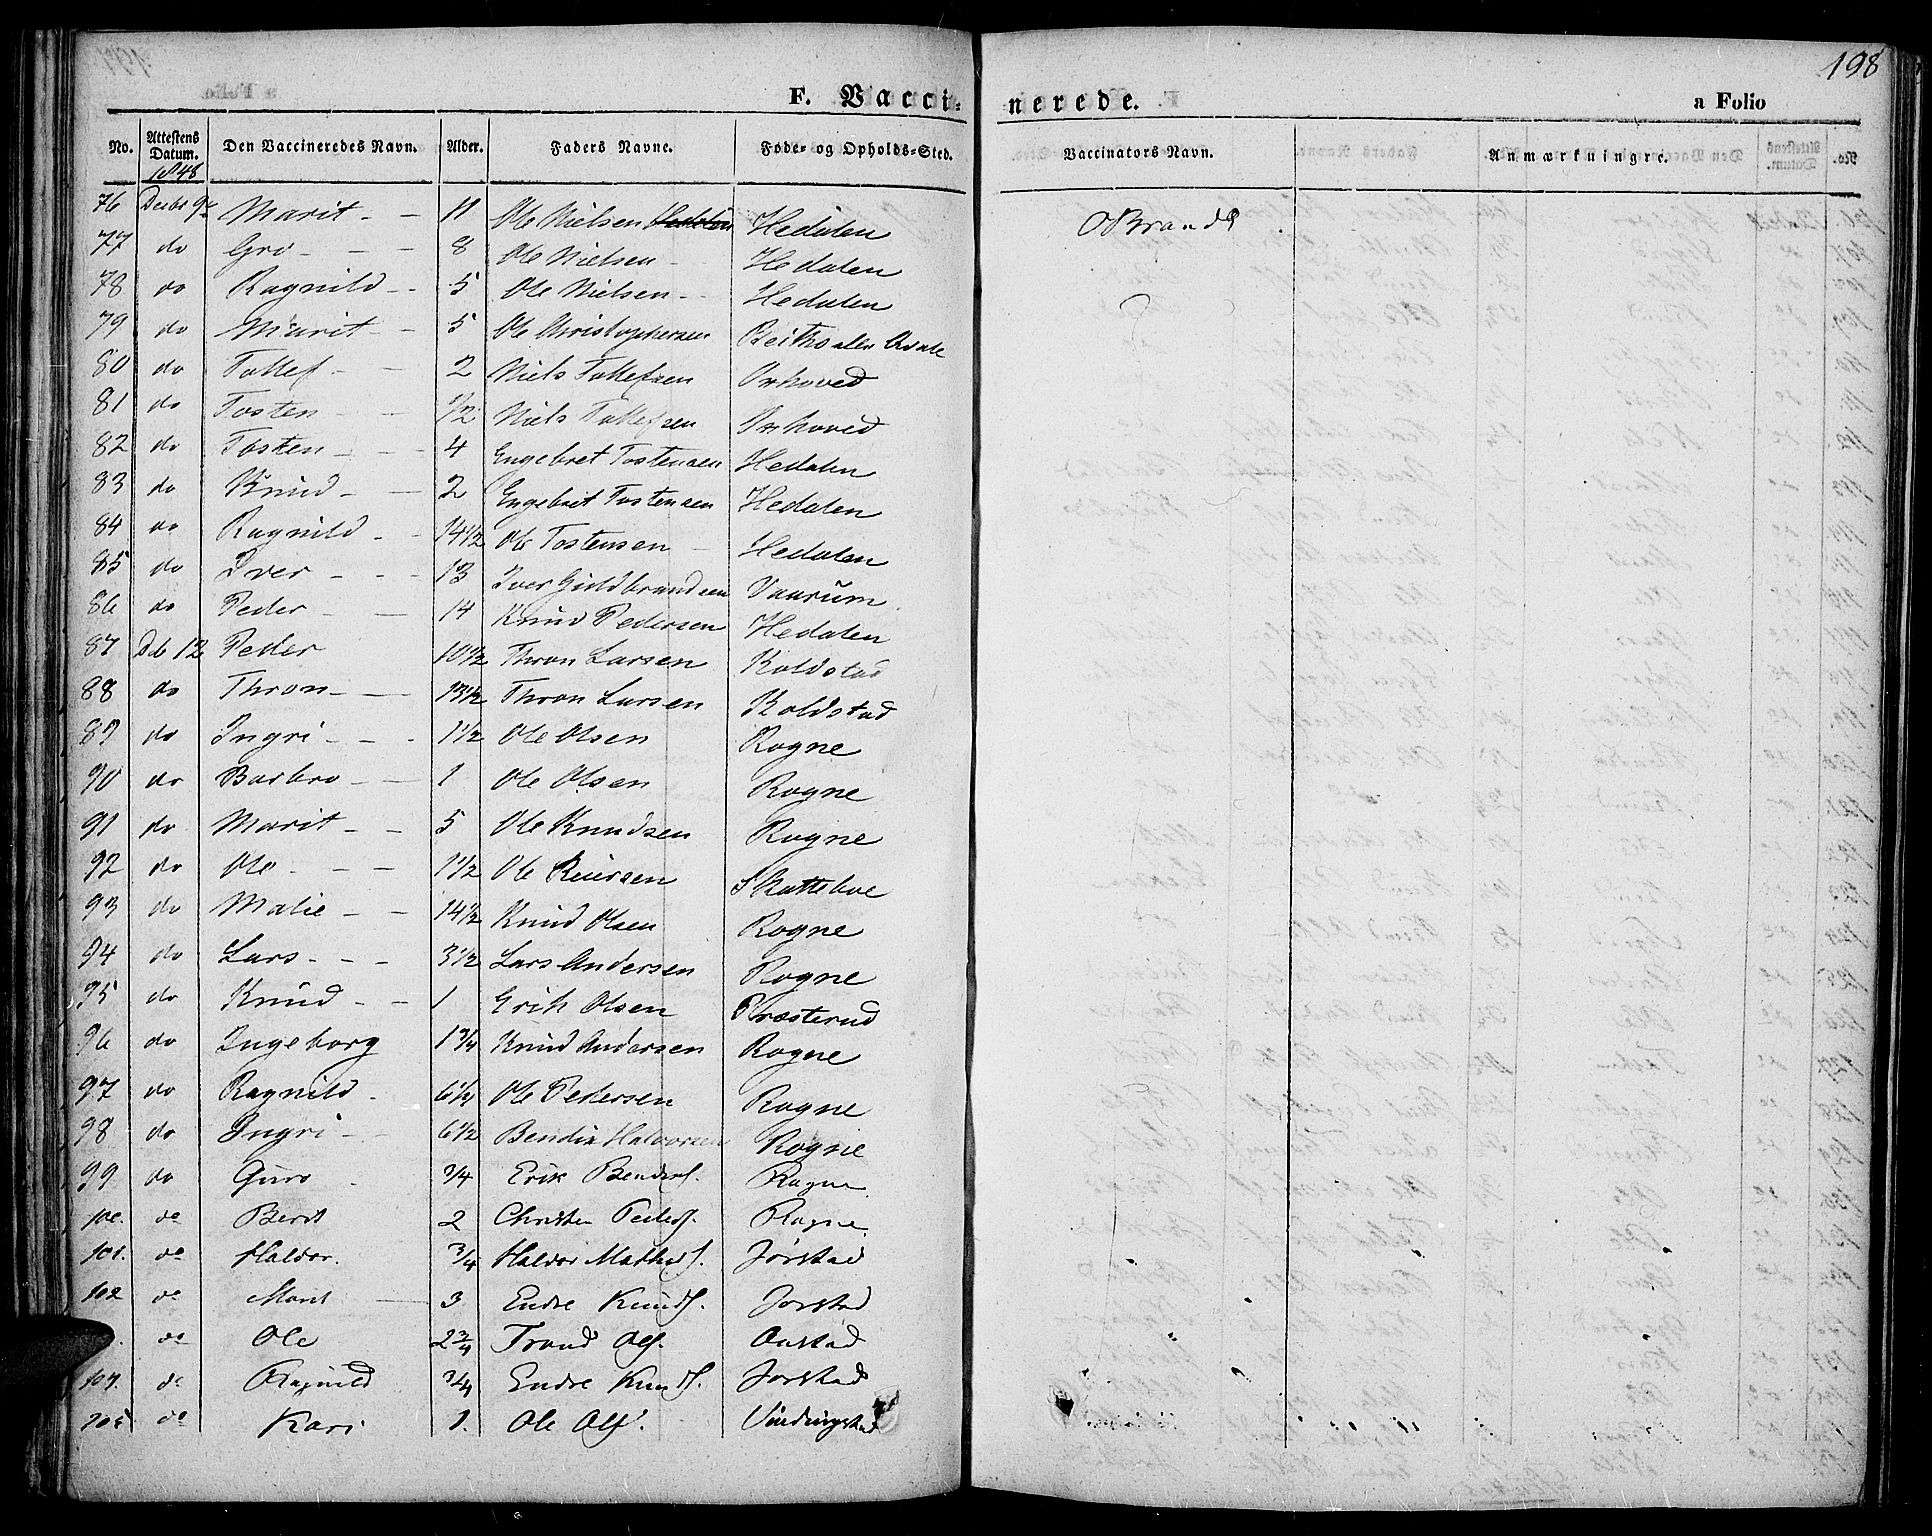 198
F. Vacci- nerede. a Folio
No. Attestens Datum. Den Vaccineredes Navn. Alder. Faders Navne. Føde- og Opholds-Sted. Vaccinators Navn. Anmærkningre.
1848
76 Decbr 9de Marit - - 11 Ole Nielsen Hedalen OBrandt
77 do Gro - - - 8 Ole Nielsen - Hedalen
78 do Ragnild - - 5 Ole Nielsen - Hedalen
79 do Marit - - 5 Ole Christophersen
80 do Tollef - - 2 Niels Tollefsen Onhoved
81 do Tosten - - 1/2 Niels Tollefsen Onhoved
82 do Tosten - - 4 Engebret Tostensen Hedalen
83 do Knud - - 2 Engebret Tostensen Hedalen
84 do Ragnild - - 14 1/2 Ole Tostensen - Hedalen
85 do Iver - - - 13 Iver Guldbrandsen Vaarum
86 do Peder - - 14 Knud Pedersen Hedalen
87 Deb 12 Peder 10 1/2 Thron Larsen Koldstad
88 do Thron - - 13 1/2 Thron Larsen Koldstad
89 do Ingri - - - 1 1/2 Ole Olsen Rogne
90 do Barbro - - 1 Ole Olsen Rogne
91 do Marit - - 5 Ole Knudsen Rogne
92 do Ole - - - 1 1/2 Ole Reiersen Skatteboe
93 do Malie - - 14 1/2 Knud Olsen Rogne
94 do Lars - - - 3 1/2 Lars Andersen Rogne
95 do Knud - - 1 Erik Olsen Præsterud
96 do Ingeborg 1 3/4 Knud Andersen Rogne
97 do Ragnild - Ole Pedersen Rogne
98 do Ingri - - 6 1/2 Bendix Halvorsen Rogne
99 do Guro - 3/4 Erik Bendixs. Rogne
100. do Berit 2 Christen Peders. Rogne
101. do Haldor. 3/4 Haldor Mathias. Jørstad
102 do Marit - 3 Endre Knuds. Jorstad
do Ole 2 3/4 Trond Ols. Onstad
104. do Ragnild 3/4 Endre Knuds. Jorstad
105 do Kari 1. Ole Ols.